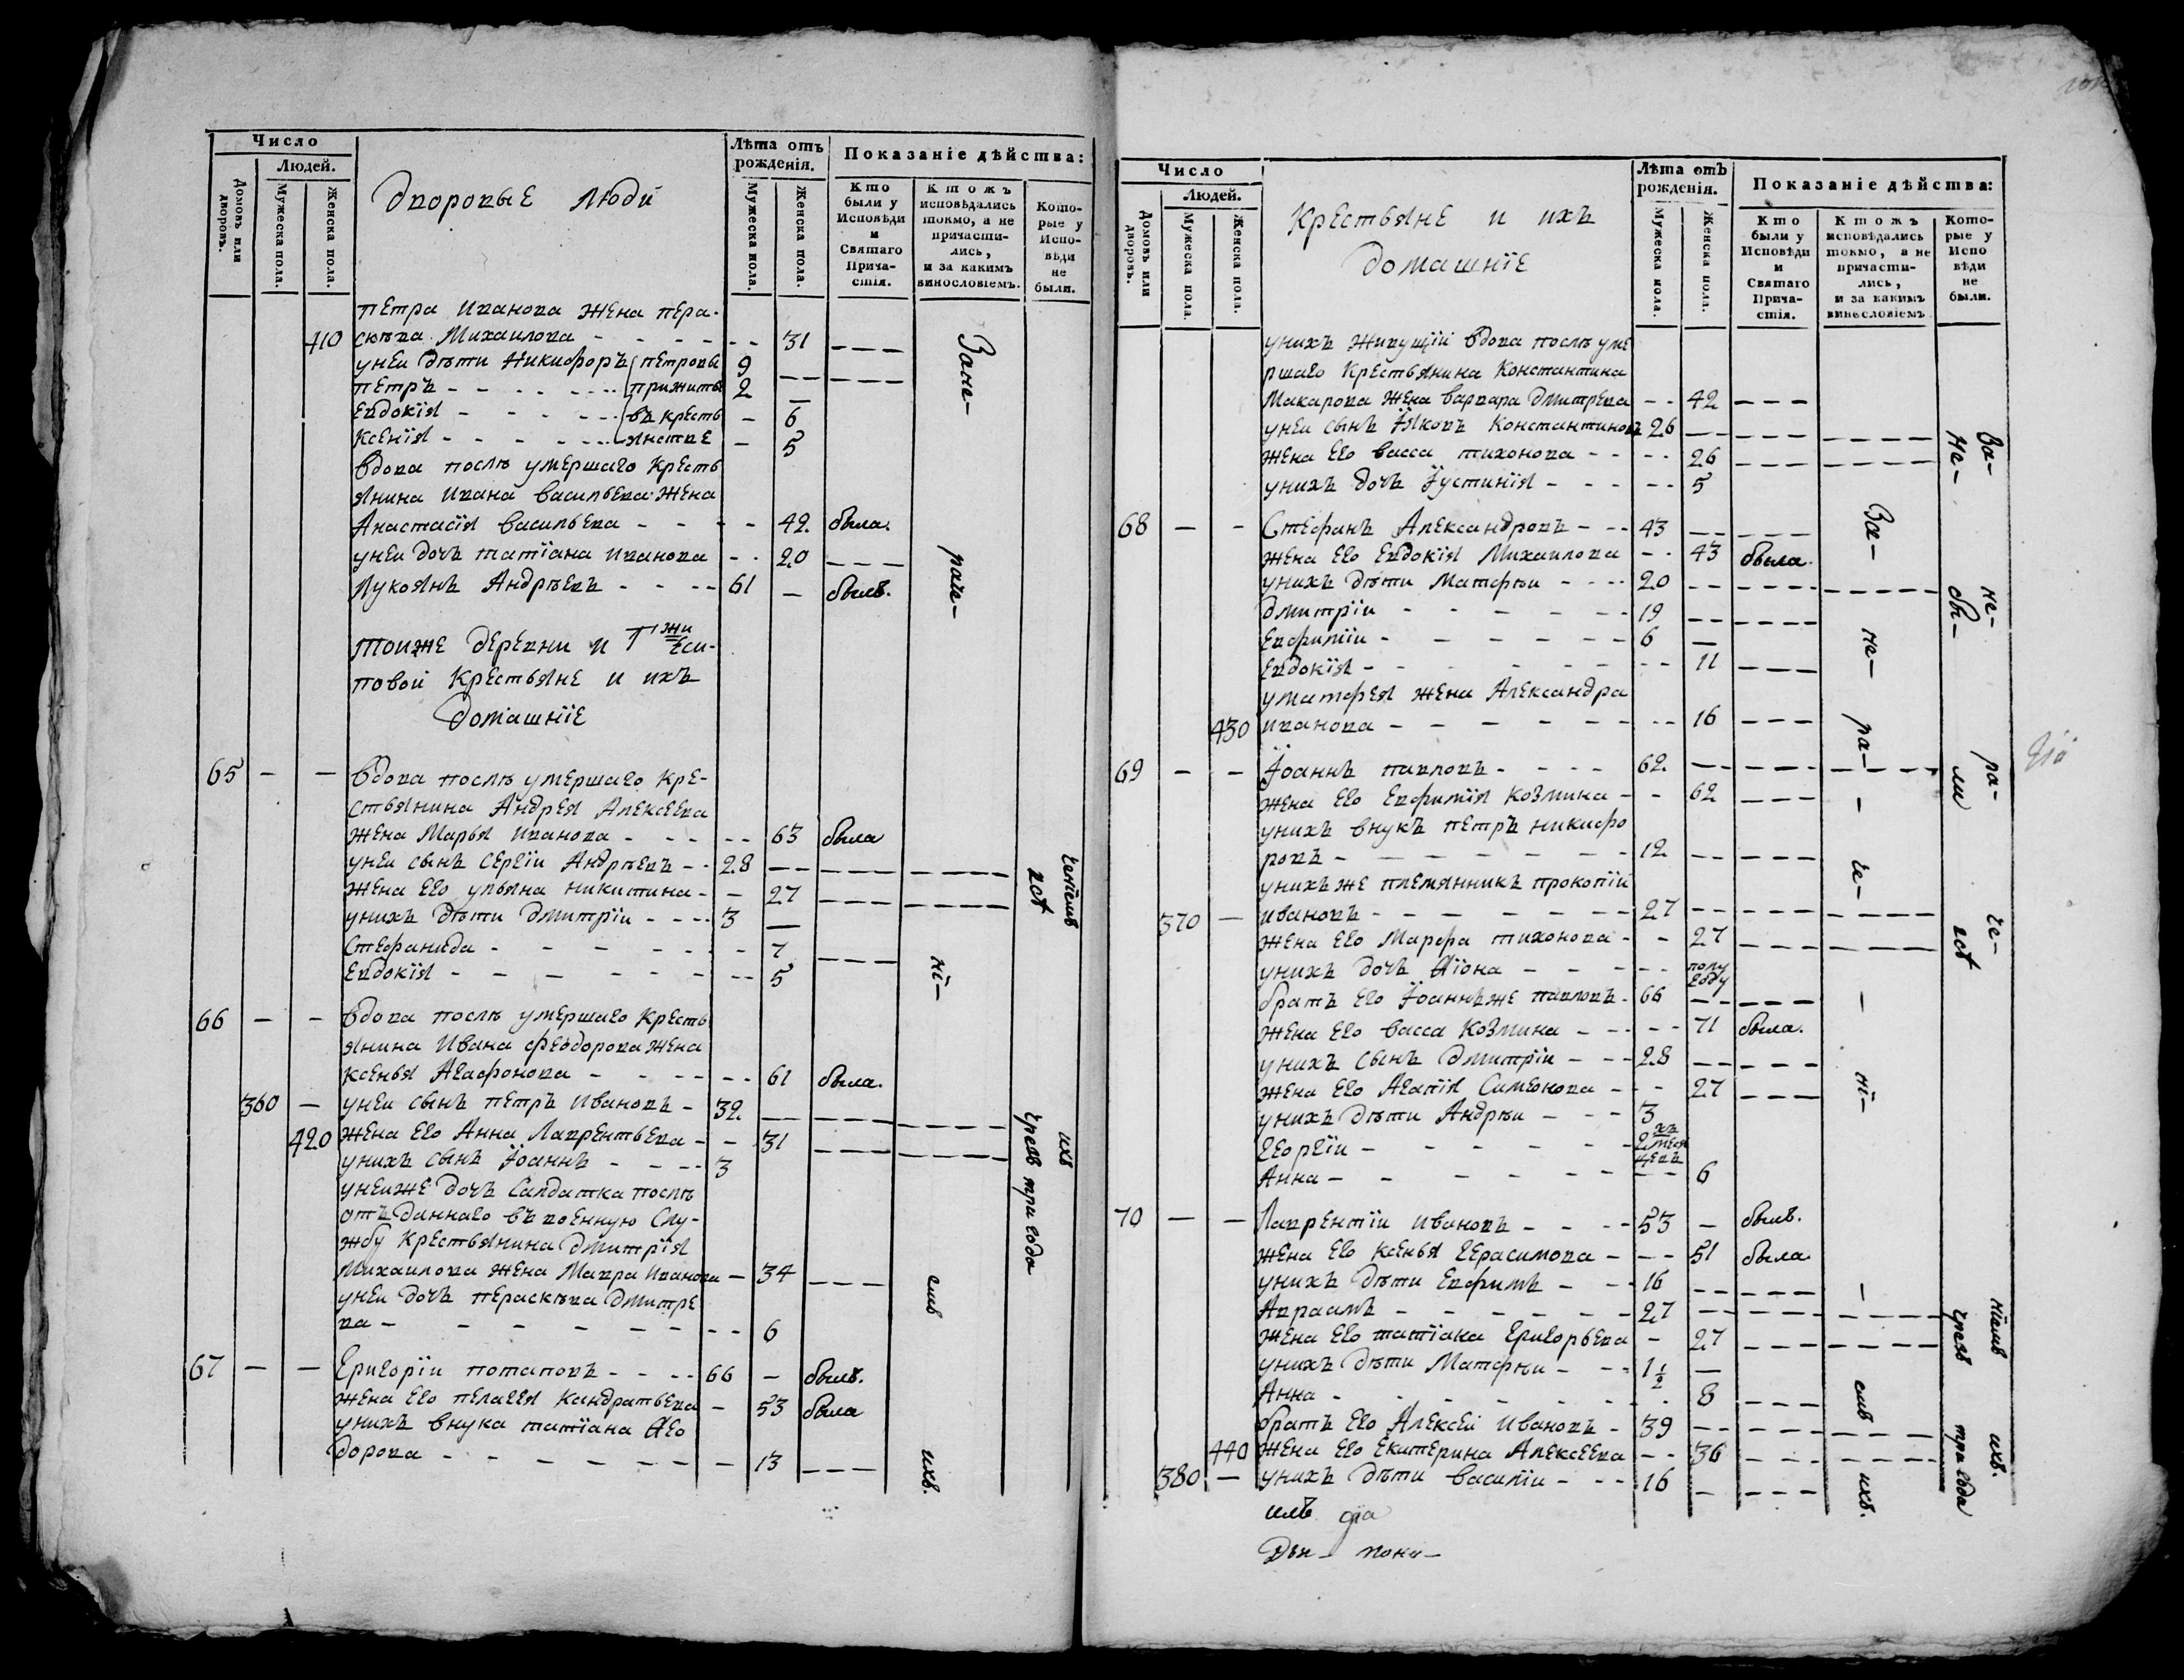 Число
Людей.
Домовъ или дворовъ.
Мужеска пола.
Женска пола.
Дворовые Люди
Лѣта отъ рожденія.
Мужеска пола.
Женска пола.
Показаніе дѣйства:
Кто были у Исповѣди и Святаго Прича- стія.
Ктожъ исповѣдались токмо, а не причасти- лись, и за какимъ винословіемъ.
Кото- рые у Испо- вѣди не были.
Петра Иванова жена Пера-
410 скѣва Михаилова - - - - - - 31 - - -
у неи дѣти Никифоръ Петровы 9 - - - - -
Петръ - - - - - - прижиты 2 —
Евдокія - - - - - - въ кресть — 6
Ксенія - - - - - - янстве — 5
Вдова послѣ умершаго Кресть
янина Ивана Васильева жена
Анастасія Васильева - - - - 42 была.
у неи дочь Татіана Иванова - - 20 - - -
Лукоянъ Андрѣевъ - - - - 61 — былъ.
Тоиже деревни и Гжи Еси-
повой Крестьяне и ихъ
Домашніе
65 — — Вдова послѣ умершаго Кре-
стьянина Андрея Алексеева
жена Марья Иванова - - - - - 63 была
у неи сынъ Сергіи Андрѣевъ - - 28 - - - - - - - - -
жена его Ульяна Никитина - - 27 - - - - - - -
у нихъ дѣти Дмитріи - - - - 3 —
Стефанида - - - - - - - 7 - - -
Евдокія - - - - - - - - 5
66 — — Вдова послѣ умершаго Кресть
янина Ивана Феодорова жена
Ксенья Агафонова - - - - - - 61 была.
360 — у неи сынъ Петръ Ивановъ - 32 - - - - - - - - -
420 жена его Анна Лаврентьева - - 31 - - - - - - -
у нихъ сынъ Іоаннъ - - - - 3
у неиже дочь Салдатка послѣ
отъданнаго въ военную Слу-
жбу Крестьянина Дмитрія
Михаилова жена Мавра Иванова — 34 - - -
у неи дочь Пераскѣва Дмитре
ва - - - - - - - - - 6
67 — — Григоріи Потаповъ - - - - 66 — былъ.
жена его Пелагея Кандратьева — 53 была
у нихъ внука Татіана Фео
дорова - - - - - - - - 13 - - -
Зане-
раче-
ні-
емъ
ихъ.
ченіемъ
ихъ
чрезъ три года
Число
Людей.
Домовъ или дворовъ.
Мужеска пола.
Женска пола.
Крестьяне и ихъ
Домашніе
Лѣта отъ рожденія.
Мужеска пола.
Женска пола.
Показаніе дѣйства:
Кто были у Исповѣди и Святаго Прича- стія.
Ктожъ исповѣдались токмо, а не причасти- лись, и за какимъ винословіемъ
Кото- рые у Испо вѣди не были.
у нихъ живущіи вдова послѣ уме
ршаго Крестьянина Константина
Макарова жена Варвара Дмитрева - - 42 - - -
у неи сынъ Іяковъ Константиновъ 26 - - - - - - - - -
жена его Васса Тихонова - - - - 26 - - - - - - -
у нихъ дочь Іустинія - - - - - 5
68 — — Стефанъ Александровъ - - - 43 - - - - -
жена его Евдокія Михаилова - - 43 была.
у нихъ дѣти Матфѣи - - - - 20 - - - - - - - - -
Дмитріи - - - - - - - 19 - - - - -
Евфиміи - - - - - - - 6 —
Евдокія - - - - - - - - - 11 - - -
у Матфея жена Александра
430 Иванова - - - - - - - - 16 - - -
69 — — Іоаннъ Павловъ - - - - 62 - - - - - - - - -
жена его Евфимія Козмина - - 62 - - -
у нихъ внукъ Петръ Никифо
ровъ - - - - - - - 12 - - - - -
у нихъже племянникъ Прокопіи
370 — Ивановъ - - - - - - - 27 - - - - - - - - -
жена его Марфа Тихонова - - 27 - - - - - - -
у нихъ дочь - - - - - полу году
братъ его Іоаннъже Павловъ - 66 - - - - -
жена его Васса Козмина - - - - - 71 была.
у нихъ сынъ Дмитріи - - - 28 - - - - -
жена его Агапія Симеонова - - - 27 - - -
у нихъ дѣти Андрѣи - - - 3
Георгіи - - - - - - 2хъ меся цевъ
Анна - - - - - - - - 6
70 — — Лаврентіи Ивановъ - - - - 53 — былъ.
жена его Ксенья Герасимова - - - 51 была
у нихъ дѣти Евфимъ - - - 16 - - - - -
Авраамъ - - - - - - 27 - - - - - - - - -
жена его Татіана Григорьева - 27 - - - - - - -
у нихъ дѣти Матфѣи - - - 1½ —
Анна - - - - - - - - 8 - - -
братъ его Алексѣи Ивановъ - 39 - - - - - - - - -
440 жена его Екатерина Алексеева - - 36 - - - - - - -
380 — у нихъ дѣти Василіи - - - 16 - - - -
За-
не-
ра-
че-
ні-
емъ
ихъ.
не-
бы-
ли
чрезъ
три года
За-
не-
ра-
че-
ніемъ
ихъ.